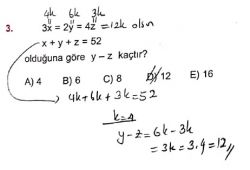 4k 6k 3k
3. 3x = 2y = 4z = 12k olsun
x + y + z = 52
olduğuna göre y – z kaçtır?
A) 4 B) 6 C) 8 D) 12 E) 16
4k + 6k + 3k = 52
k = 4
y - z = 6k - 3k
= 3k = 3.4 = 12